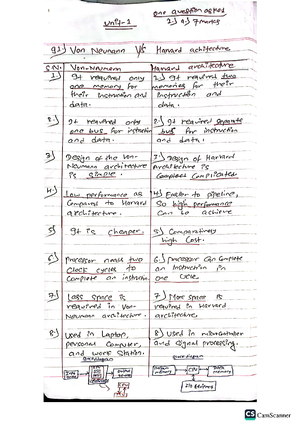 one question asked
Unit-1
2) 07 marks
Q1) Von Neumann V/S Harvard architecture
S.N. Von-Neumann Harvard architecture
1) It required only 1) It required two
one memory for memories for their
their instruction and instruction and
data. data.
2) It required only 2) It required separate
one bus for instruction bus for instruction
and data. and data.
3) Design of the Von- 3) Design of Harvard
Neumann architecture architecture is
is simple. complicated.
4) Low performance as 4) Easier to pipeline,
compared to Harvard so high performance
architecture. can be achieve
5) It is cheaper. 5) Comparatively
high cost.
6) Processor needs two 6) Processor can complete
clock cycles to an instruction in
complete an instruction. one cycle
7) Less space is 7) More space is
required in Von- required in Harvard
Neumann architecture. architecture.
8) Used in Laptop, 8) Used in microcontroller
personal computer, and signal processing.
and work station.
CPU
memory
I/O devices
CS CamScanner